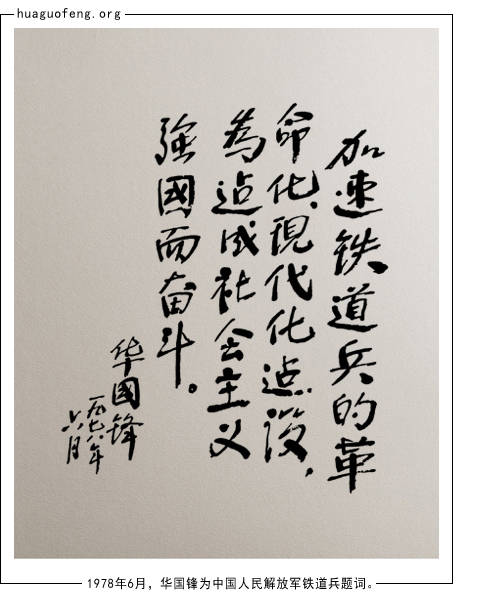 huaguofeng.org
加速铁道兵的革
命化、現代化迠设，
為迠成社会主义
強國而奋斗。
华國锋
一九七八年
六月
1978年6月，华国锋为中国人民解放军铁道兵题词。